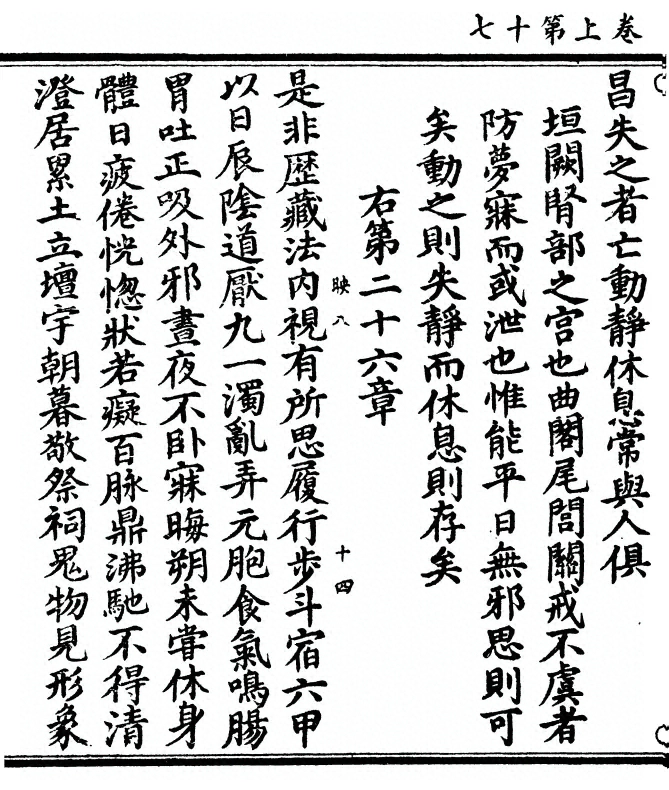 卷上第十七
昌失之者亡動靜休息常與人俱
垣闕腎部之宮也曲閣尾閭關戒不虞者
防夢寐而或泄也惟能平日無邪思則可
矣動之則失靜而休息則存矣
右第二十六章
映八
十四
是非歷藏法內視有所思履行步斗宿六甲
以日辰陰道厭九一濁亂弄元胞食氣鳴腸
胃吐正吸外邪晝夜不卧寐晦朔未嘗休身
體日疲倦恍惚狀若癡百脉鼎沸馳不得清
澄居累土立壇宇朝暮敬祭祠鬼物見形象